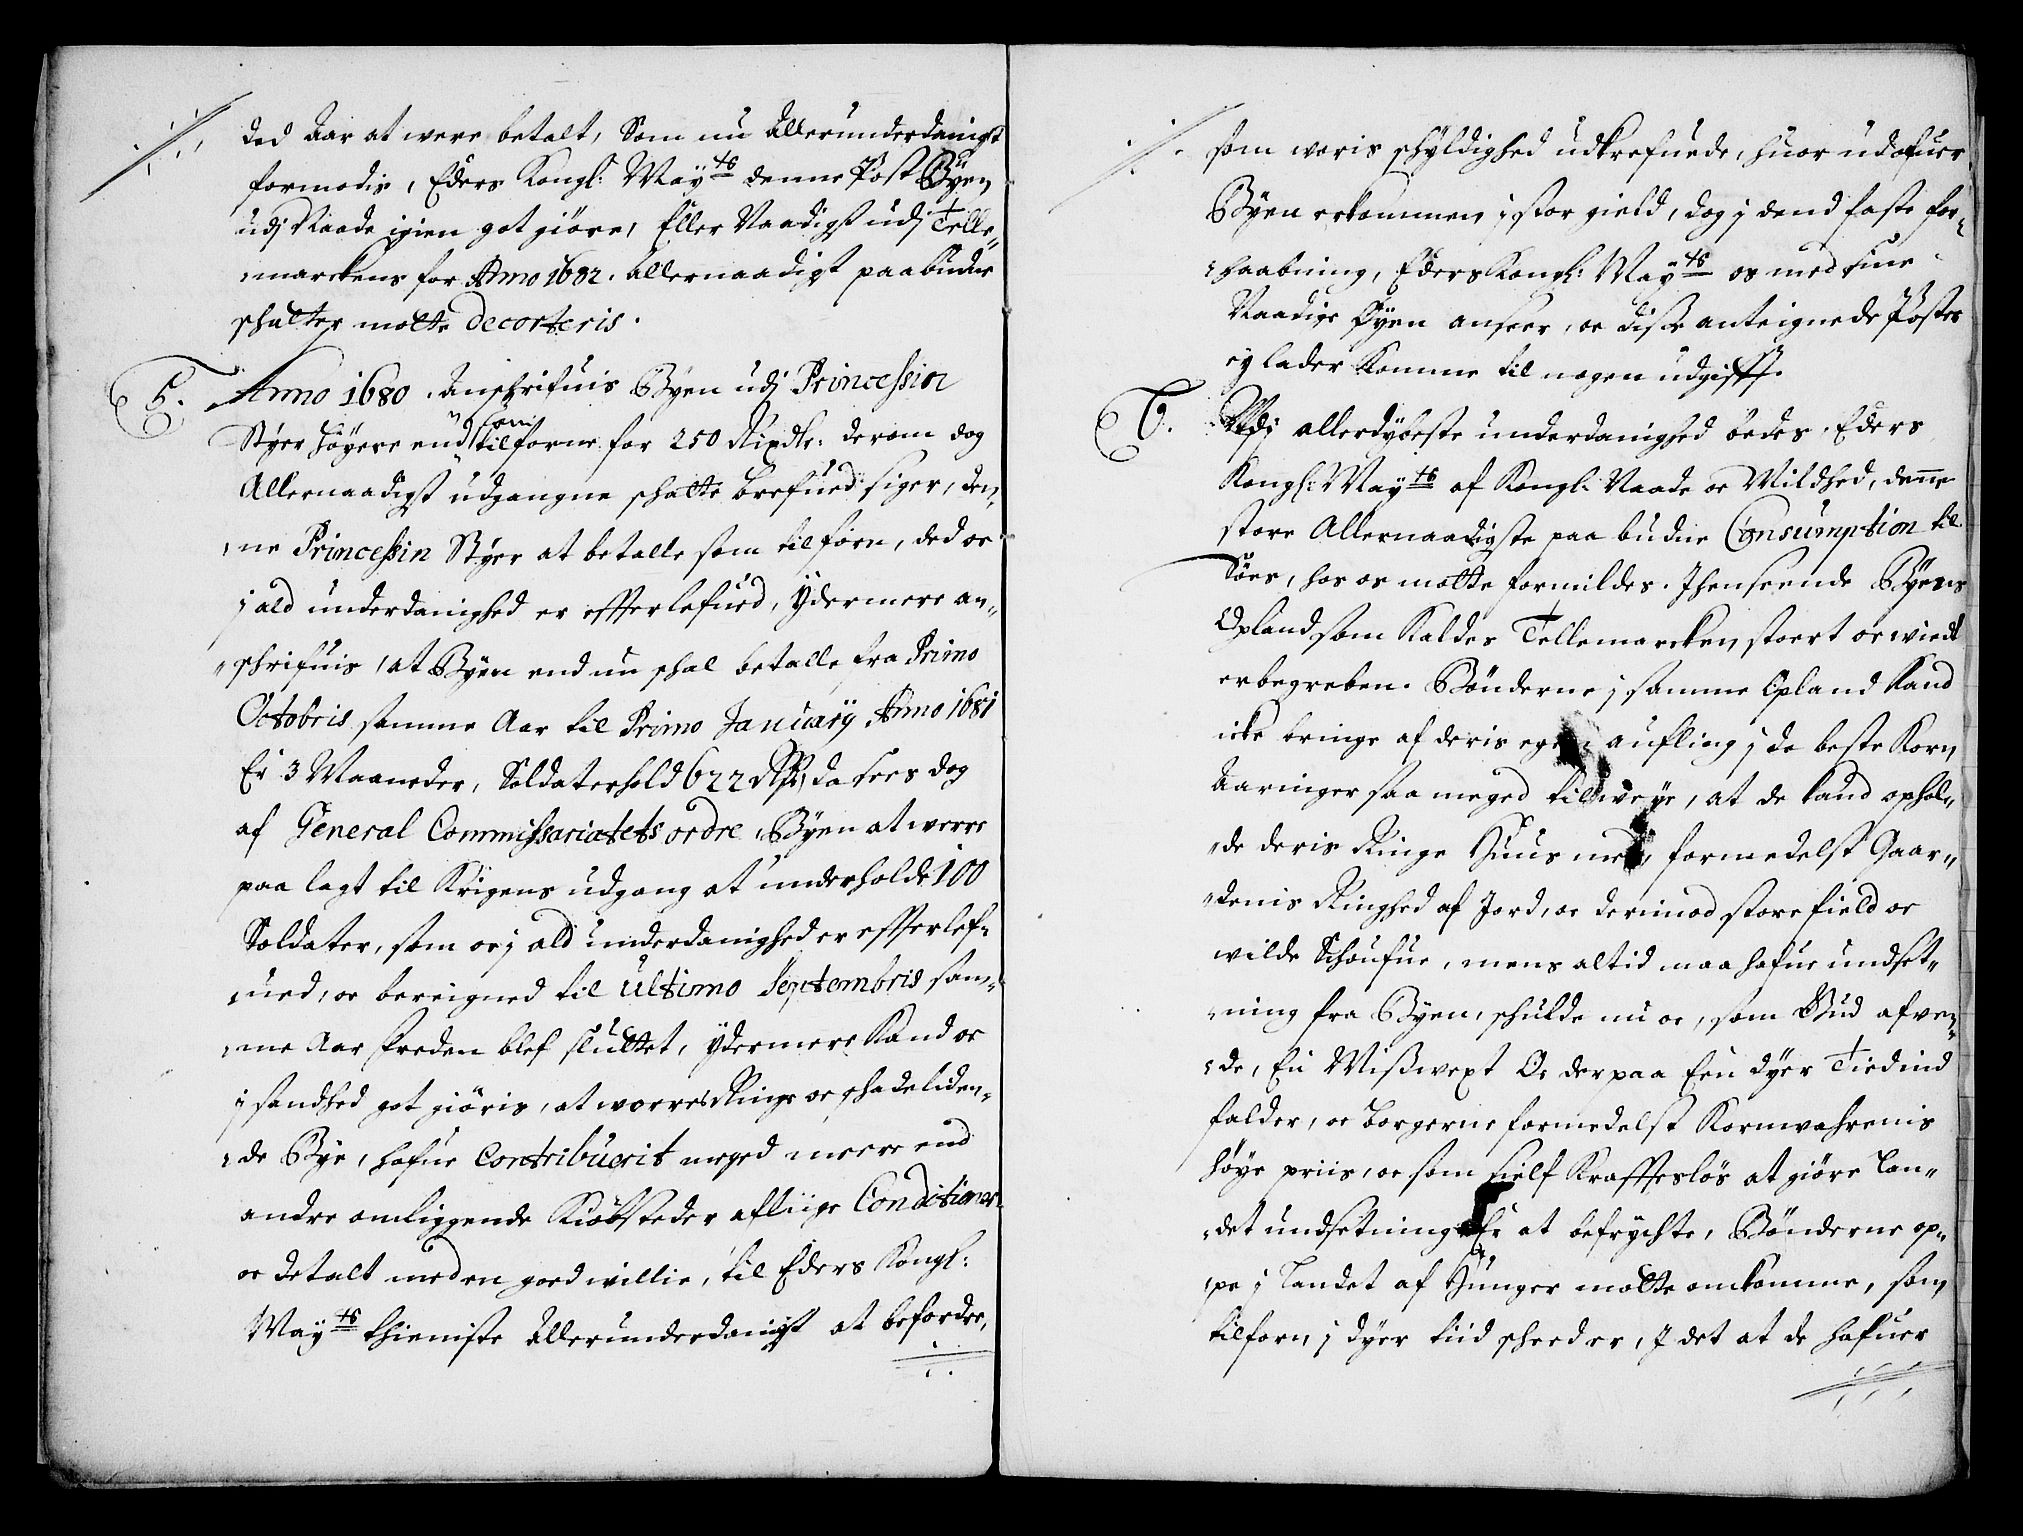 ded Aar at were betalt, Som nu Allerunderdanigst
formodis, Eders Kongl: May<sup>ts</sup> denne Post Byen
udj Naade igien got giöre, Eller Naadigst udj Telle„
„marckens for Anno 1682. Allernaadigst paabudne
schatter motte decorteris.
5. Anno 1680. Anschrifuis Byen udj Princessin
Styer höyere end som tilforne for 250 Rixdlr: derom dog
Allernaadigst udgangne schatte brefued siger, den„
„ne Princessin Styer at betalle som tilforn, ded oc
j ald underdanighed er efterlefued, Ydermere an„
„schrifuis, at Byen end nu schal betalle fra Primo
Octobris samme Aar til Primo January Anno 1681
Er 3 Maaneder, Soldaterhold 622 Rdr, da sees dog
af General Commissariatets ordre, Byen at werre
paa lagt til Krigens udgang at underholde 100
Soldater, som oc j ald underdanighed er efterlef„
„ued, oc bereigned til ultimo Septembris sam„
„me Aar freden blef sluttet, ydermere Kand oc
j sandhed got giöris, at worres Ringe oc schadeliden„
„de Bye, hafue Contribuerit meged meere end
andre omliggende Kiöbsteder aflige Conditioner
oc betalt med en goed willie, til Eders Kongl:
May<sup>ts</sup> thieniste Allerunderdanigst at befordre,
som woris schyldighed udkrefuede, huor udofuer
Byen er kommen j stor gield, dog j dend faste for„
„haabning, Eders Kongl: May<sup>ts</sup> os med sine
Naadige Öyen anseer, oc disse anteignede Poster
ej lader komme til nogen udgifft.
6. Udj allerdybeste underdanighed bedes. Eders
Kongl: May<sup>ts</sup> af Kongl: Naade oc Mildhed, denne
store Allernaadigste paa budne Consumption til
Söes, hos os motte formildes. Ihenseende Byens
Opland som Kaldes Tellemarcken, stoert oc wiedt
er begreben. Bönderne j samme Opland Kand
icke bringe af deris egen aufling j de beste Korn
Aaringer saa meged tilweye, at de kand ophol„
„de deris Ringe Huus med, formedelst Gaar„
„denis Ringhed af Jord, oc derimod store field oc
wilde Schoufue, mens altid maa hafue undset„
„ning fra Byen, schulde nu oc, som Gud afwen„
„de, En Misswext Oc derpaa Een dyer Tied ind
falder, oc borgerne formedelst Kornwahrenis
höye priis, oc som sielf Kraffteslös at giöre Lan„
„det undsetning Er at befrychte, Bönderne op„
„pe j Landet af Hunger motte omkomme, som
tilforn j dyer tiid scheed er, I det at de hafuer